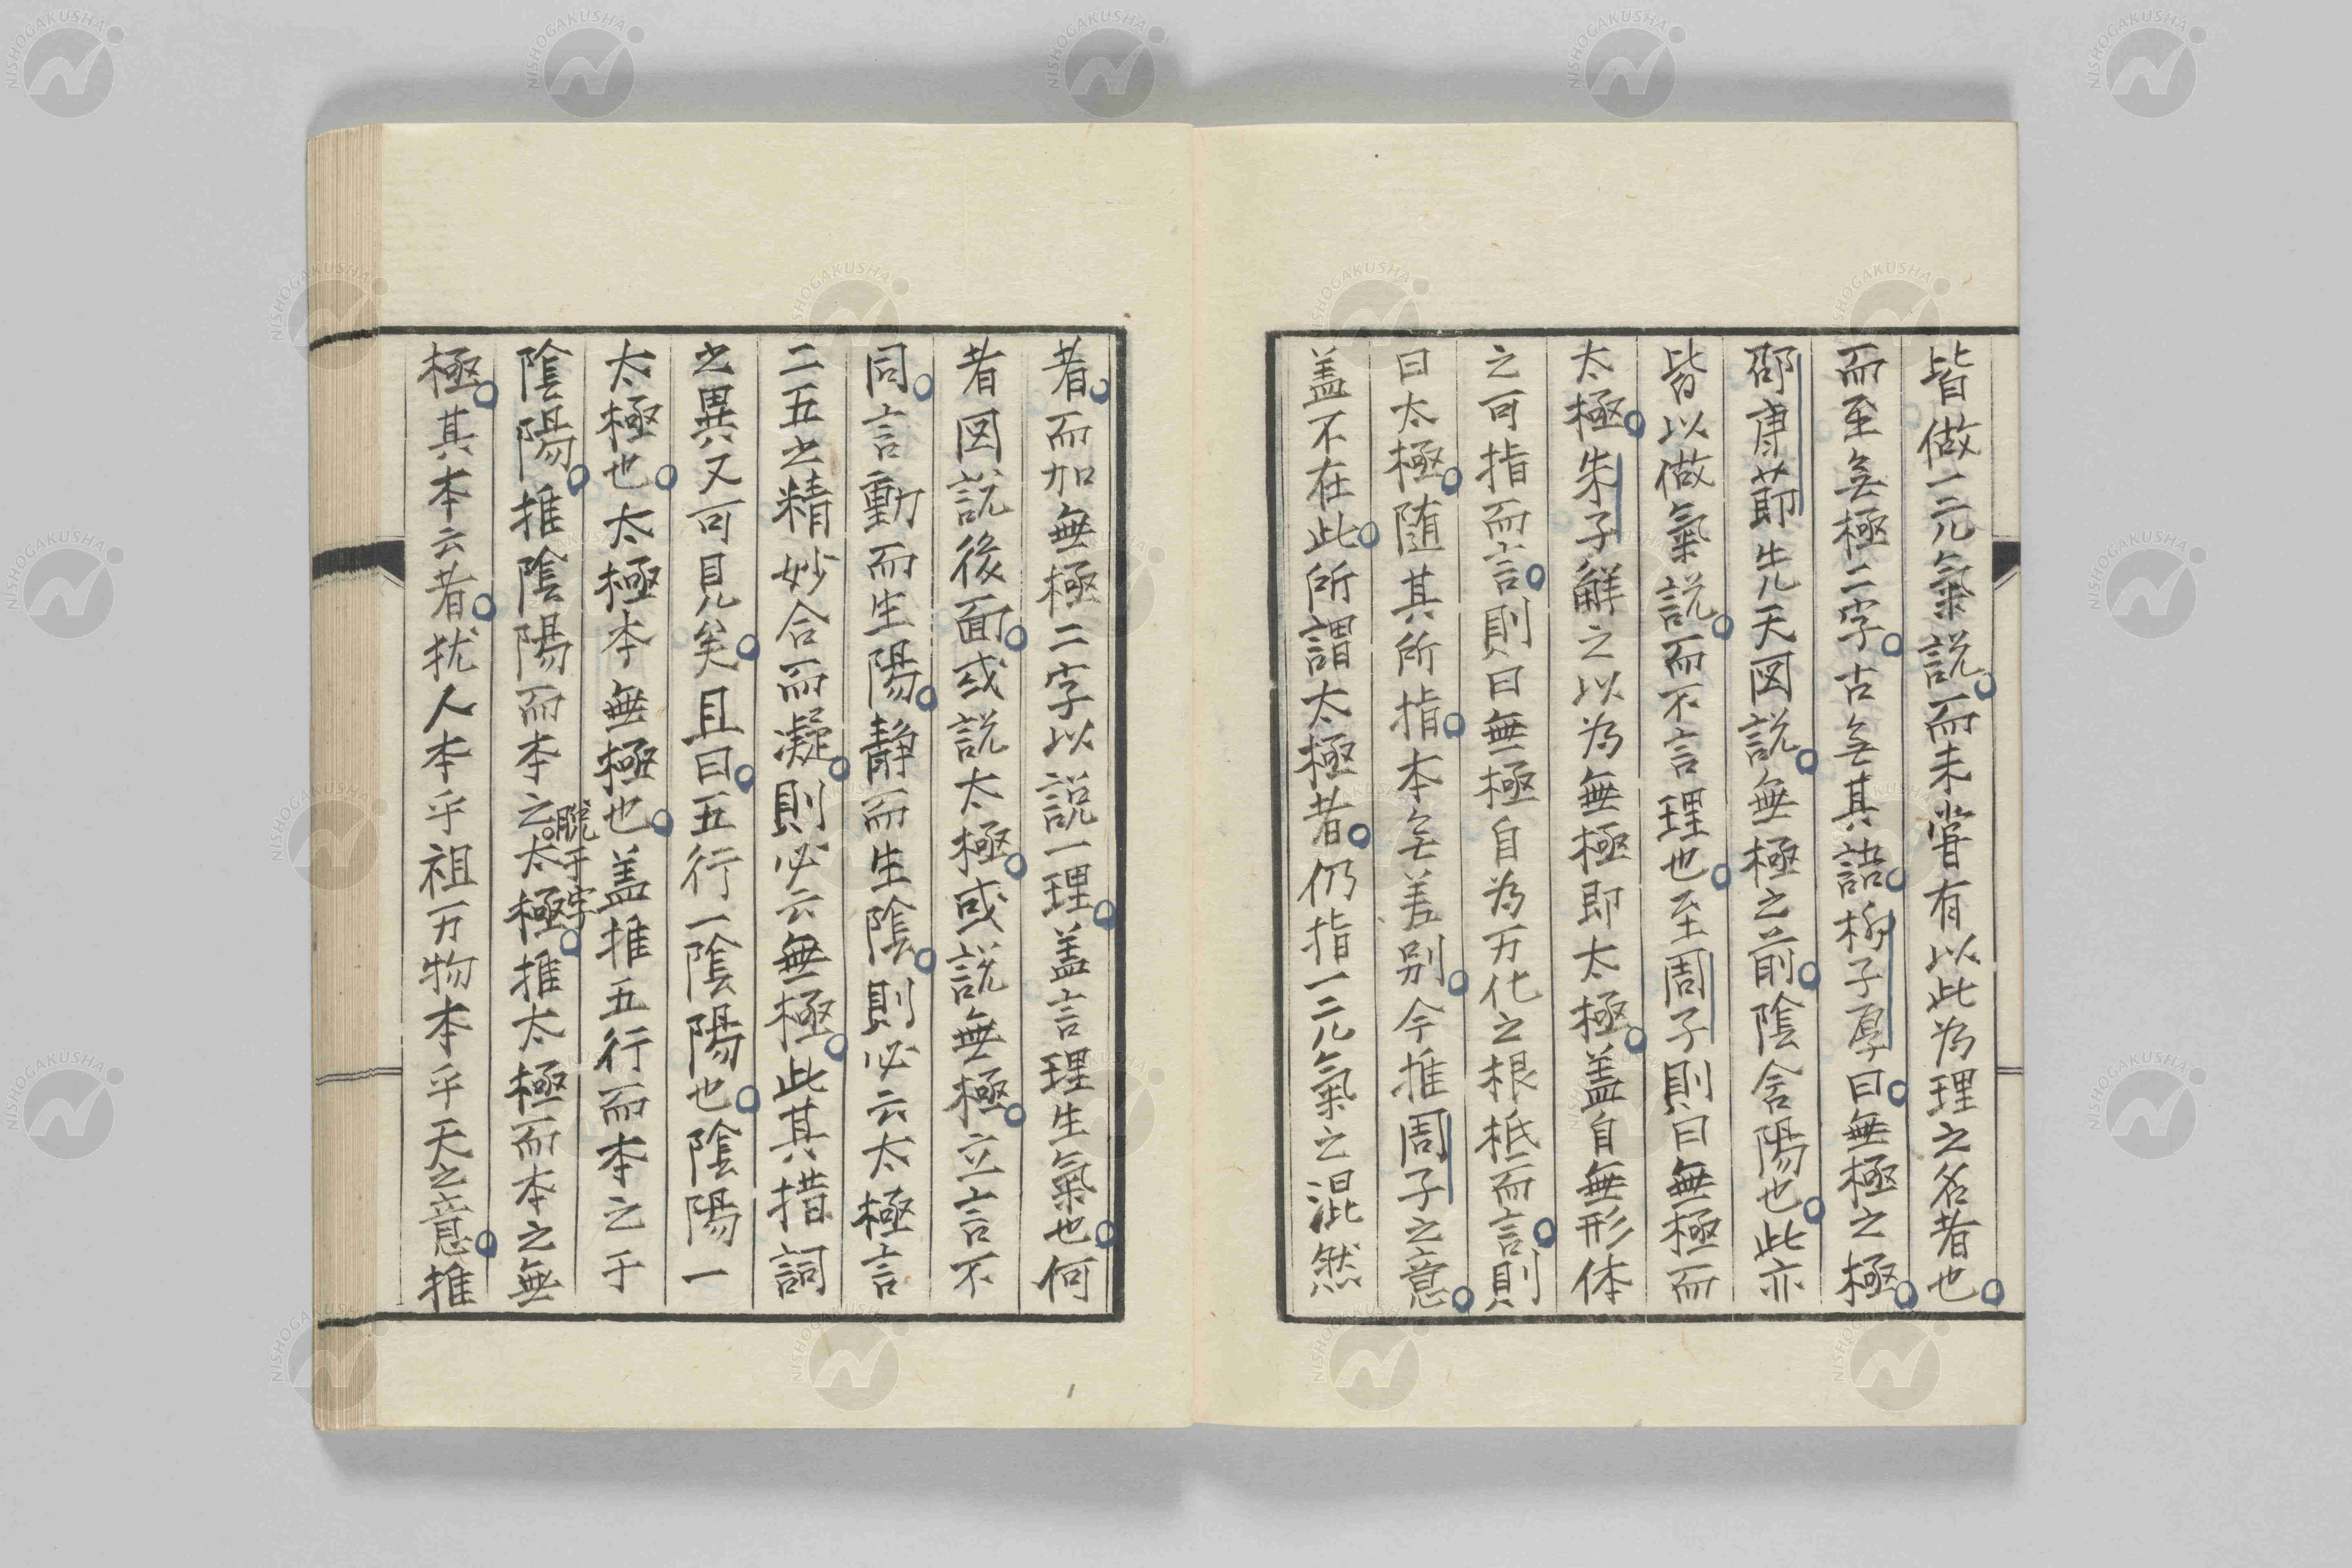 皆做一元氣説而未嘗有以此為理之名者也
而至无極二字古无其語柳子厚曰無極之極
邵康節先天図説無極之前陰含陽也此亦
皆以做氣説而不言理也至周子則曰無極而
太極朱子解之以為無極即太極盖自無形体
之可指而言則曰無極自為万化之根柢而言則
曰太極随其所指本无差別今推周子之意
盖不在此所謂太極者仍指一元氣之混然
者而加無極二字以説一理盖言理生氣也何
者図説後面或説太極或説無極立言不
同言動而生陽静而生陰則必云太極言
二五之精妙合而凝則必云無極此其措詞
之異又可見矣且曰五行一陰陽也陰陽一
太極也太極本無極也盖推五行而本之于
陰陽推陰陽而本之太極推太極而本之無
脱于字
極其本云者犹人本乎祖万物本乎天之意推
NISHOGAKUSHA